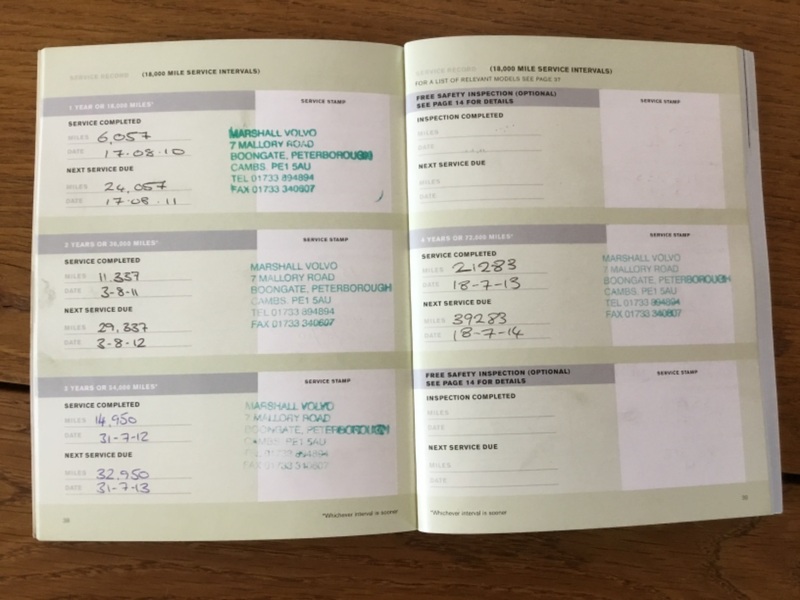 SERVICE RECORD (18,000 MILE SERVICE INTERVALS)
1 YEAR OR 18,000 MILES*
SERVICE STAMP
SERVICE COMPLETED
MILES 6,057
DATE 17.08.10
NEXT SERVICE DUE
MILES 24,057
DATE 17.08.11
MARSHALL VOLVO
7 MALLORY ROAD
BOONGATE, PETERBOROUGH
CAMBS. PE1 5AU
TEL 01733 894894
FAX 01733 340607
2 YEARS OR 36,000 MILES*
SERVICE STAMP
SERVICE COMPLETED
MILES 11,337
DATE 3-8-11
NEXT SERVICE DUE
MILES 29,337
DATE 3-8-12
MARSHALL VOLVO
7 MALLORY ROAD
BOONGATE, PETERBOROUGH
CAMBS. PE1 5AU
TEL 01733 894894
FAX 01733 340607
3 YEARS OR 54,000 MILES*
SERVICE STAMP
SERVICE COMPLETED
MILES 14,950
DATE 31-7-12
NEXT SERVICE DUE
MILES 32,950
DATE 31-7-13
MARSHALL VOLVO
7 MALLORY ROAD
BOONGATE, PETERBOROUGH
CAMBS. PE1 5AU
TEL 01733 894894
FAX 01733 340607
*Whichever interval is sooner
38
SERVICE RECORD (18,000 MILE SERVICE INTERVALS)
FOR A LIST OF RELEVANT MODELS SEE PAGE 37
FREE SAFETY INSPECTION (OPTIONAL)
SEE PAGE 14 FOR DETAILS
SERVICE STAMP
INSPECTION COMPLETED
MILES
DATE
NEXT SERVICE DUE
MILES
DATE
4 YEARS OR 72,000 MILES*
SERVICE STAMP
SERVICE COMPLETED
MILES 21283
DATE 18-7-13
NEXT SERVICE DUE
MILES 39283
DATE 18-7-14
MARSHALL VOLVO
7 MALLORY ROAD
BOONGATE, PETERBOROUGH
CAMBS. PE1 5AU
TEL 01733 894894
FAX 01733 340607
FREE SAFETY INSPECTION (OPTIONAL)
SEE PAGE 14 FOR DETAILS
SERVICE STAMP
INSPECTION COMPLETED
MILES
DATE
NEXT SERVICE DUE
MILES
DATE
*Whichever interval is sooner